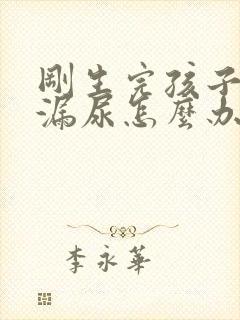 剛生完孩子
漏尿怎麼办
李永華